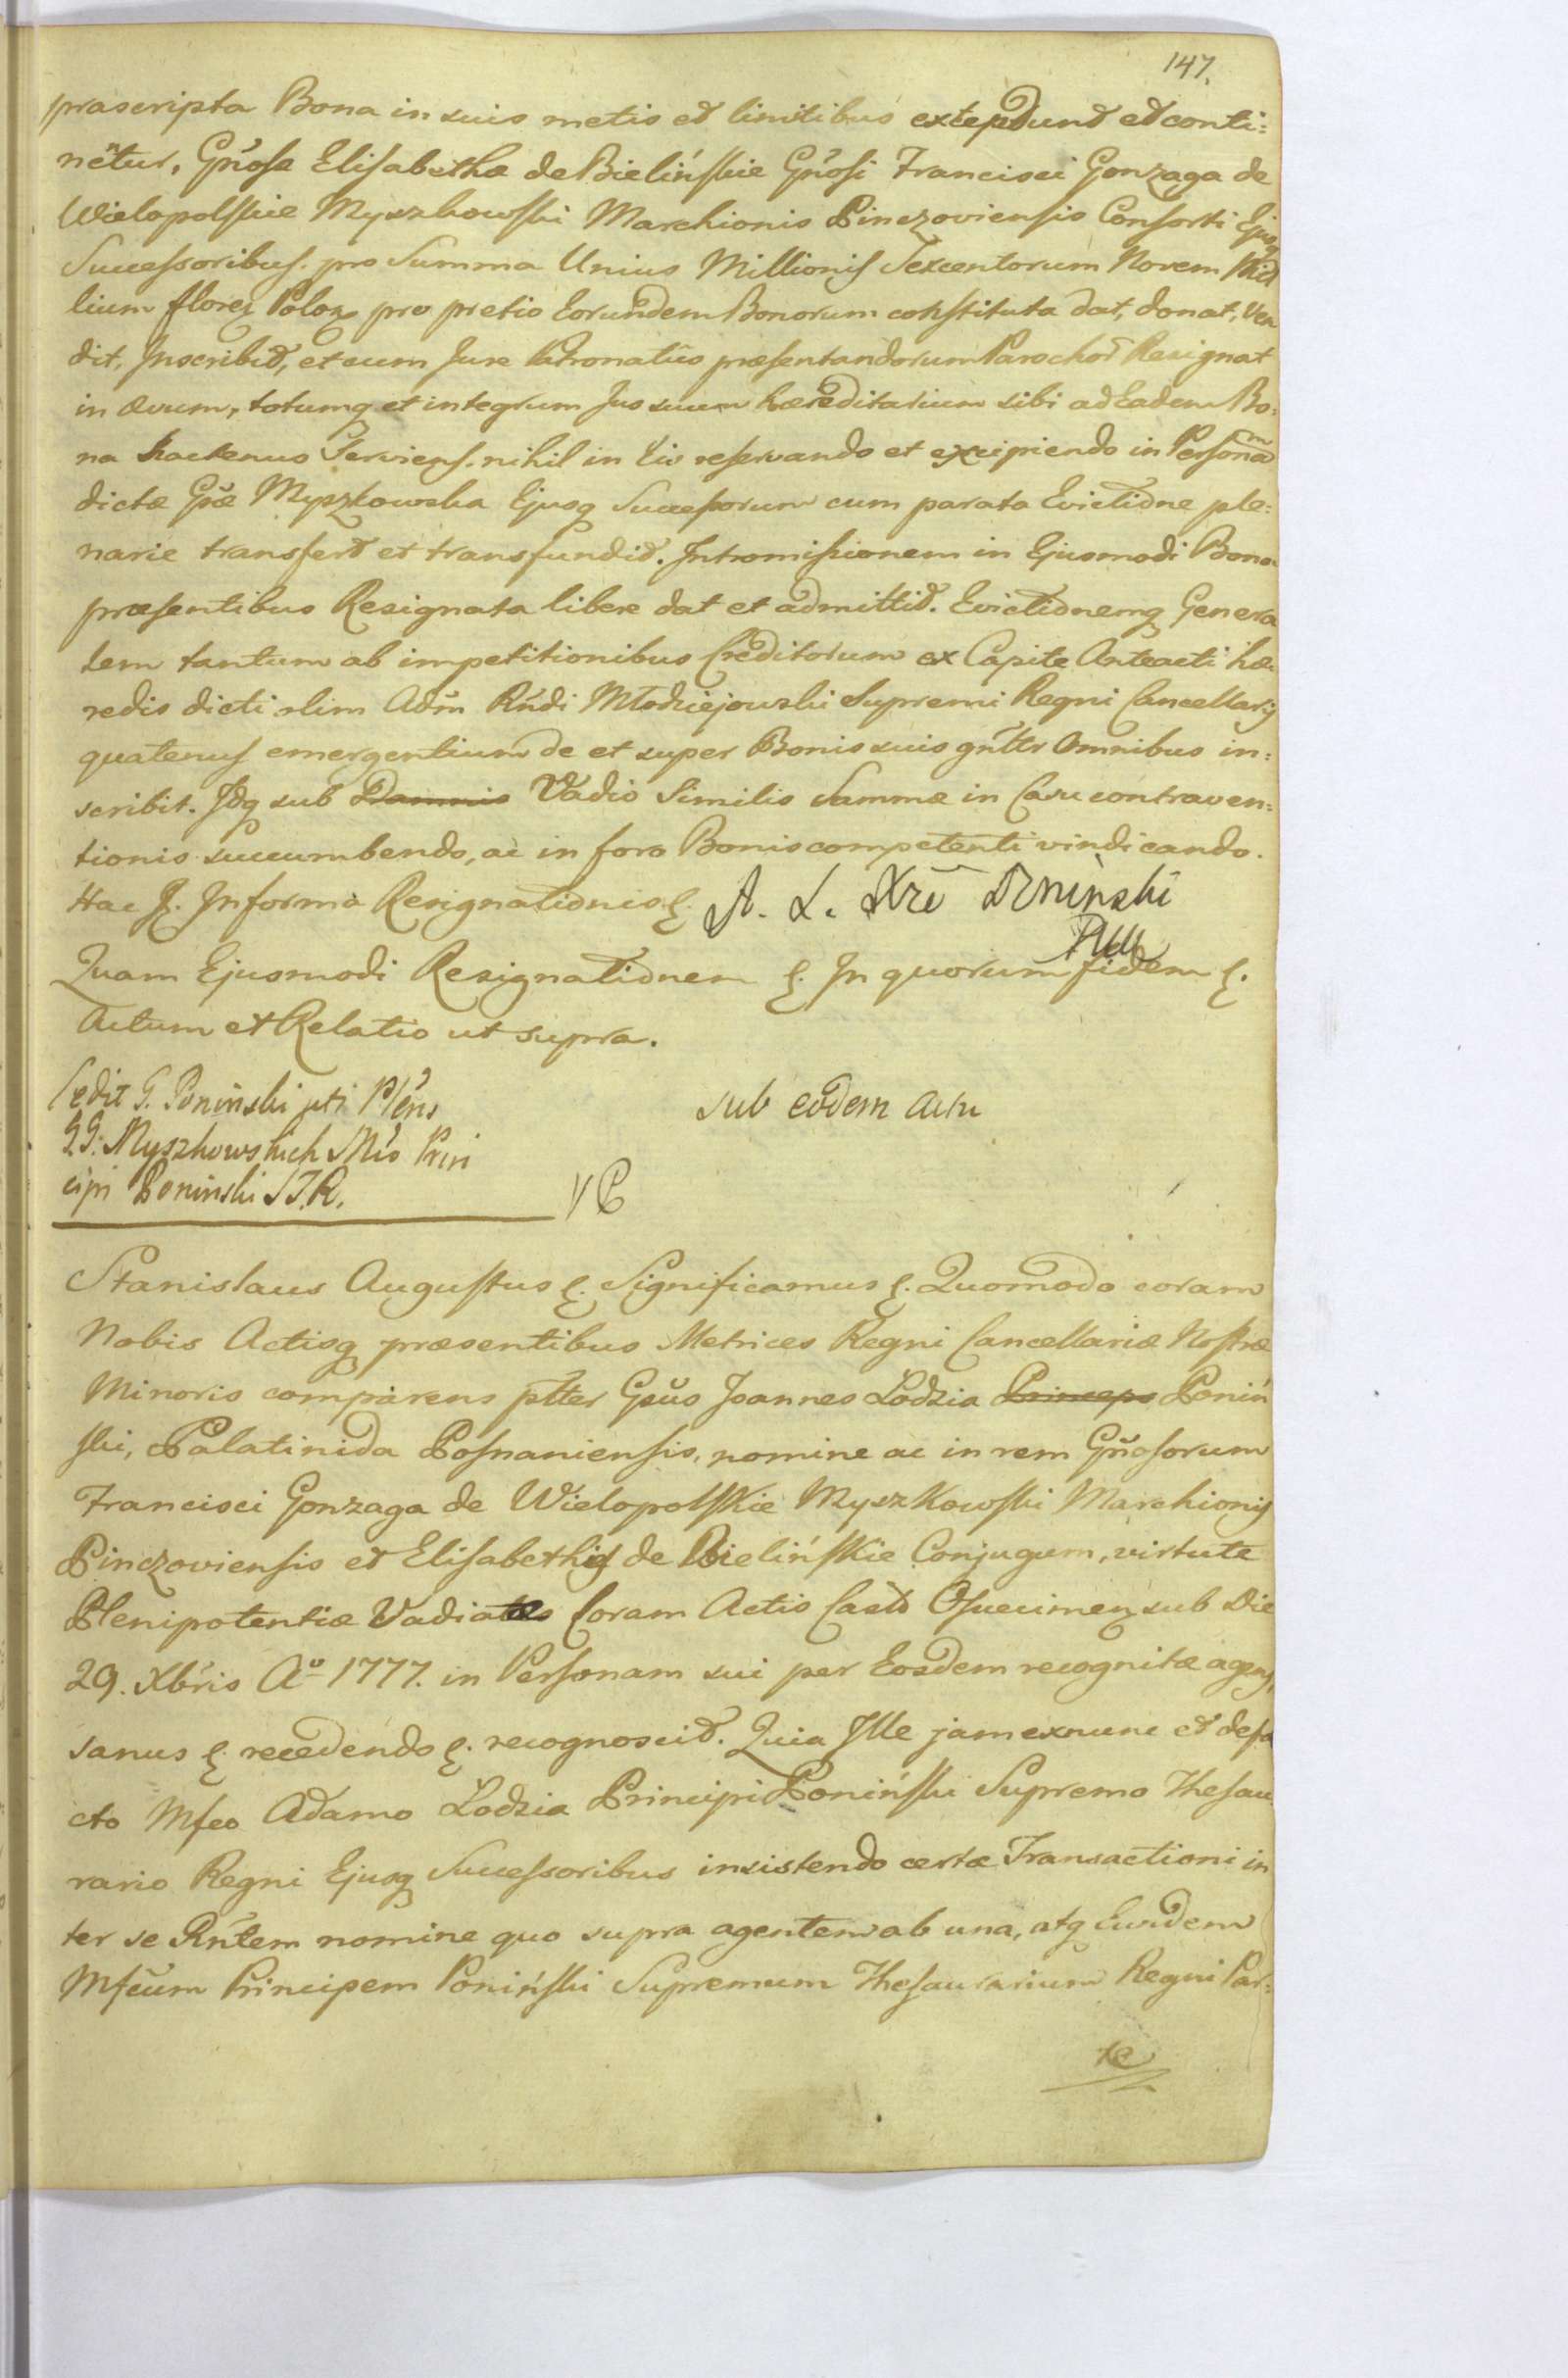 147.
præscripta Bona in suis metis et limitibus extendunt et conti=
nētur, Gn̄osæ Elisabethæ de Bielińskie Gn̄osi Francisci Gonzaga de
Wielopolskie Myszkowski Marchionis Pinczoviensis Consorti Ejusq
Successoribus. pro Summa Unius Millionis Sexcentorum Novem Mil
lium floreꝝ Poloꝝ pro pretio Eorundem Bonorum constituta dat, donat, Ven
dit, Inscribit, et cum Jure Patronatûs præsentandorum Parochor̄ Resignat
in ævum, totumq et integrum Jus suum hæreditarium sibi ad Eadem Bo=
na hactenus Serviens. nihil in Eis reservando et excipiendo in Personam
dictæ Gsæ Myszkowska Ejusq Successorum cum parata Evictione ple=
narie transfert et transfundit. Intromissionem in Ejusmodi Bona
præsentibus Resignata libere dat et admittit. Evictionemq Genera
lem tantum ab impetitionibus Creditorum ex Capite Anteacti hæ
redis dicti olim Adm̄ Rn̄di Młodziejowski Supremi Regni Cancellarij
quatenus emergentium de et super Bonis suis gn̄ltr Omnibus in=
scribit. Idq sub Damnis Vadio Similis Summæ in Casu contraven=
tionis succumbendo, ac in foro Bonis competenti vindicando.
Hac J. In forma Resignationis ę. A. L. Xże Poninski
Quam Ejusmodi Resignationem ę. In quorum fidem ę.
Actum et Relatio ut supra.
Cedit G. Poninski uti Plēns
GG: Myszkowskich Mf̄o Prin
cipi Poninski STR.
sub eodem actu
VC
Stanislaus Augustus ę. Significamus ę. Quomodo coram
Nobis Actisq præsentibus Metrices Regni Cancellariæ Nostræ
Minoris comparens pltter Gsūs Joannes Lodzia Princeps Poniń
ski, Palatinida Posnaniensis, nomine ac in rem Gn̄osorum
Francisci Gonzaga de Wielopolskie Myszkowski Marchionis
Pinczoviensis et Elisabethis de Bielińskie Conjugum, virtute
Plenipotentiæ Vadiatæ Coram Actis Castr̄ Osvecimenꝝ sub Die
29. Xbris Aº 1777. in Personam sui per Eosdem recognitæ agens,
sanus ę. recedendo ę. recognoscit. Quia Ille jam exnunc et defa
cto Mfco Adamo Lodzia Principi Poniński Supremo Thesau
rario Regni Ejusq Successoribus insistendo certæ Transactioni in
ter se Rn̄tem nomine quo supra agentem ab una, atq Eundem
Mfcūm Principem Poniński Supremum Thesaurarium Regni Par=
te